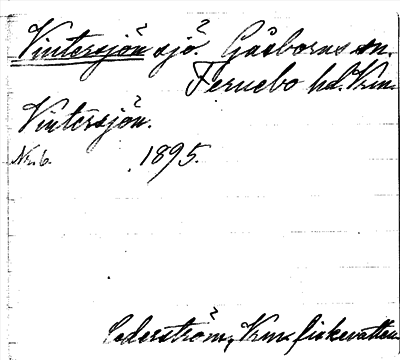 Vintersjön sjö. Gåsborns sn.
Fernebo hd. Vrm.
Vintersjön.
Nr. 6. 1895.
Cederström, Vrmx fiskevatten